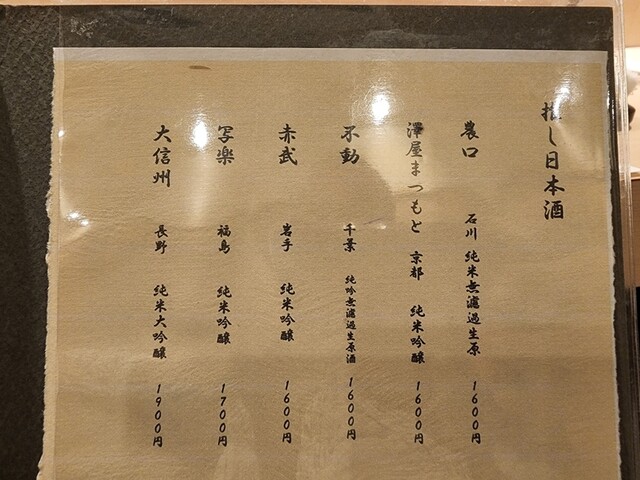 推し日本酒
農口 石川 純米無濾過生原 1600円
澤屋まつもと 京都 純米吟醸 1600円
不動 千葉 純吟無濾過生原酒 1600円
赤武 岩手 純米吟醸 1600円
写楽 福島 純米吟醸 1700円
大信州 長野 純米大吟醸 1900円